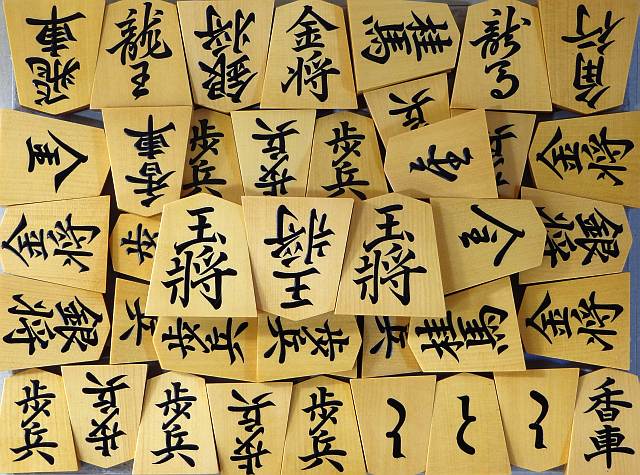 飛車 龍王 銀将 金将 桂馬 龍馬 角行
歩兵
全 香車 歩兵 歩兵 歩兵 馬 金将
金将 歩 王将 王将 王将 全 銀将
銀将 歩兵 歩兵 歩兵 香車 金将
歩兵 歩兵 歩兵 歩兵 歩兵 と と と 香車